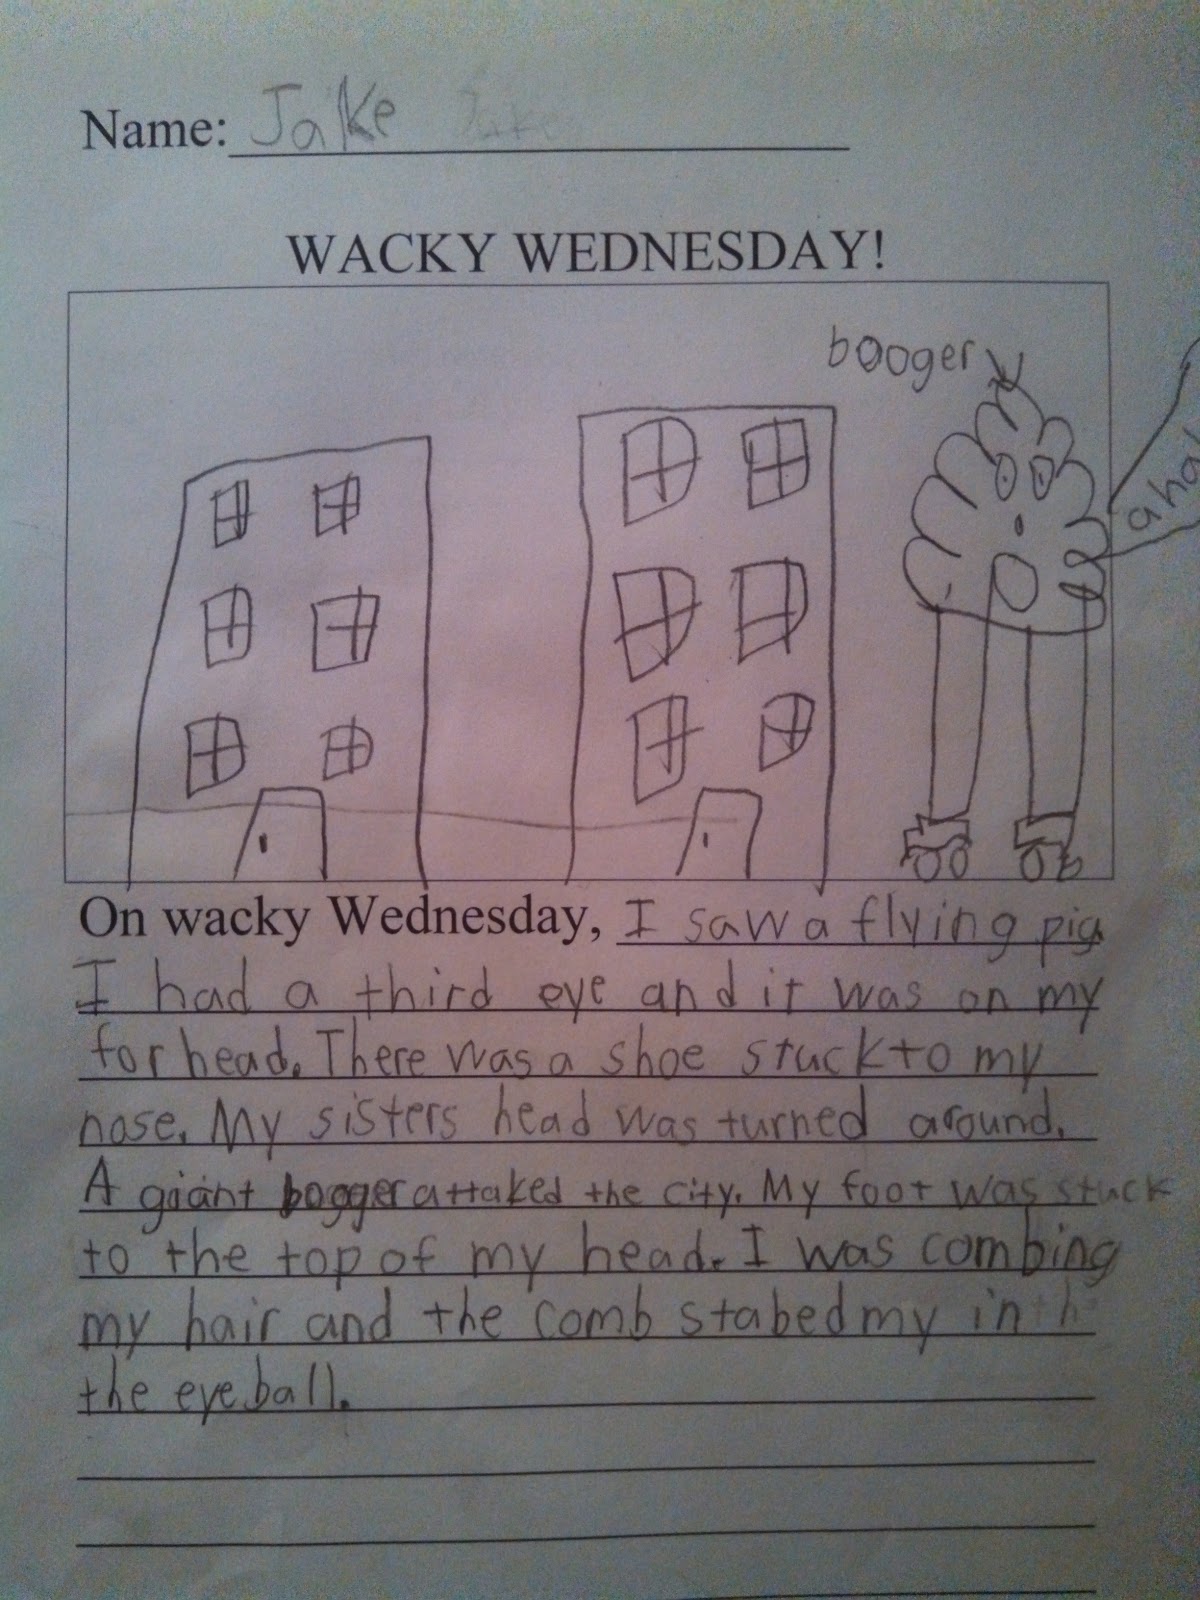 Name: Jake
WACKY WEDNESDAY!
booger
aha
On wacky Wednesday, I saw a flying pig
I had a third eye and it was on my
for head. There was a shoe stuck to my
nose. My sisters head was turned around.
A giant booger attaked the city. My foot was stuck
to the top of my head. I was combing
my hair and the comb stabed my in
the eyeball.